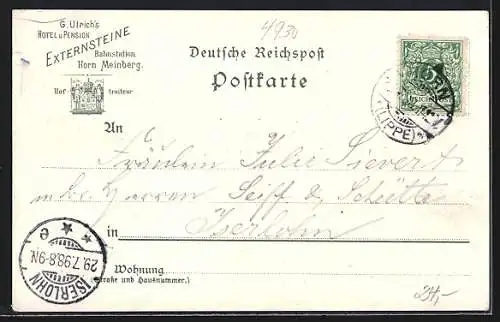 4930
G. Ulrich's
HOTEL u. PENSION
EXTERNSTEINE
Bahnstation
Horn Meinberg.
Deutsche Reichspost
Postkarte
HORN
(LIPPE)
An
Fräulein Julie Sievert
Herren Seiff & Schütte
in Iserlohn
ISERLOHN
29.7.98.8-9N.
* * e
Wohnung
(Straße und Hausnummer.)
24,-